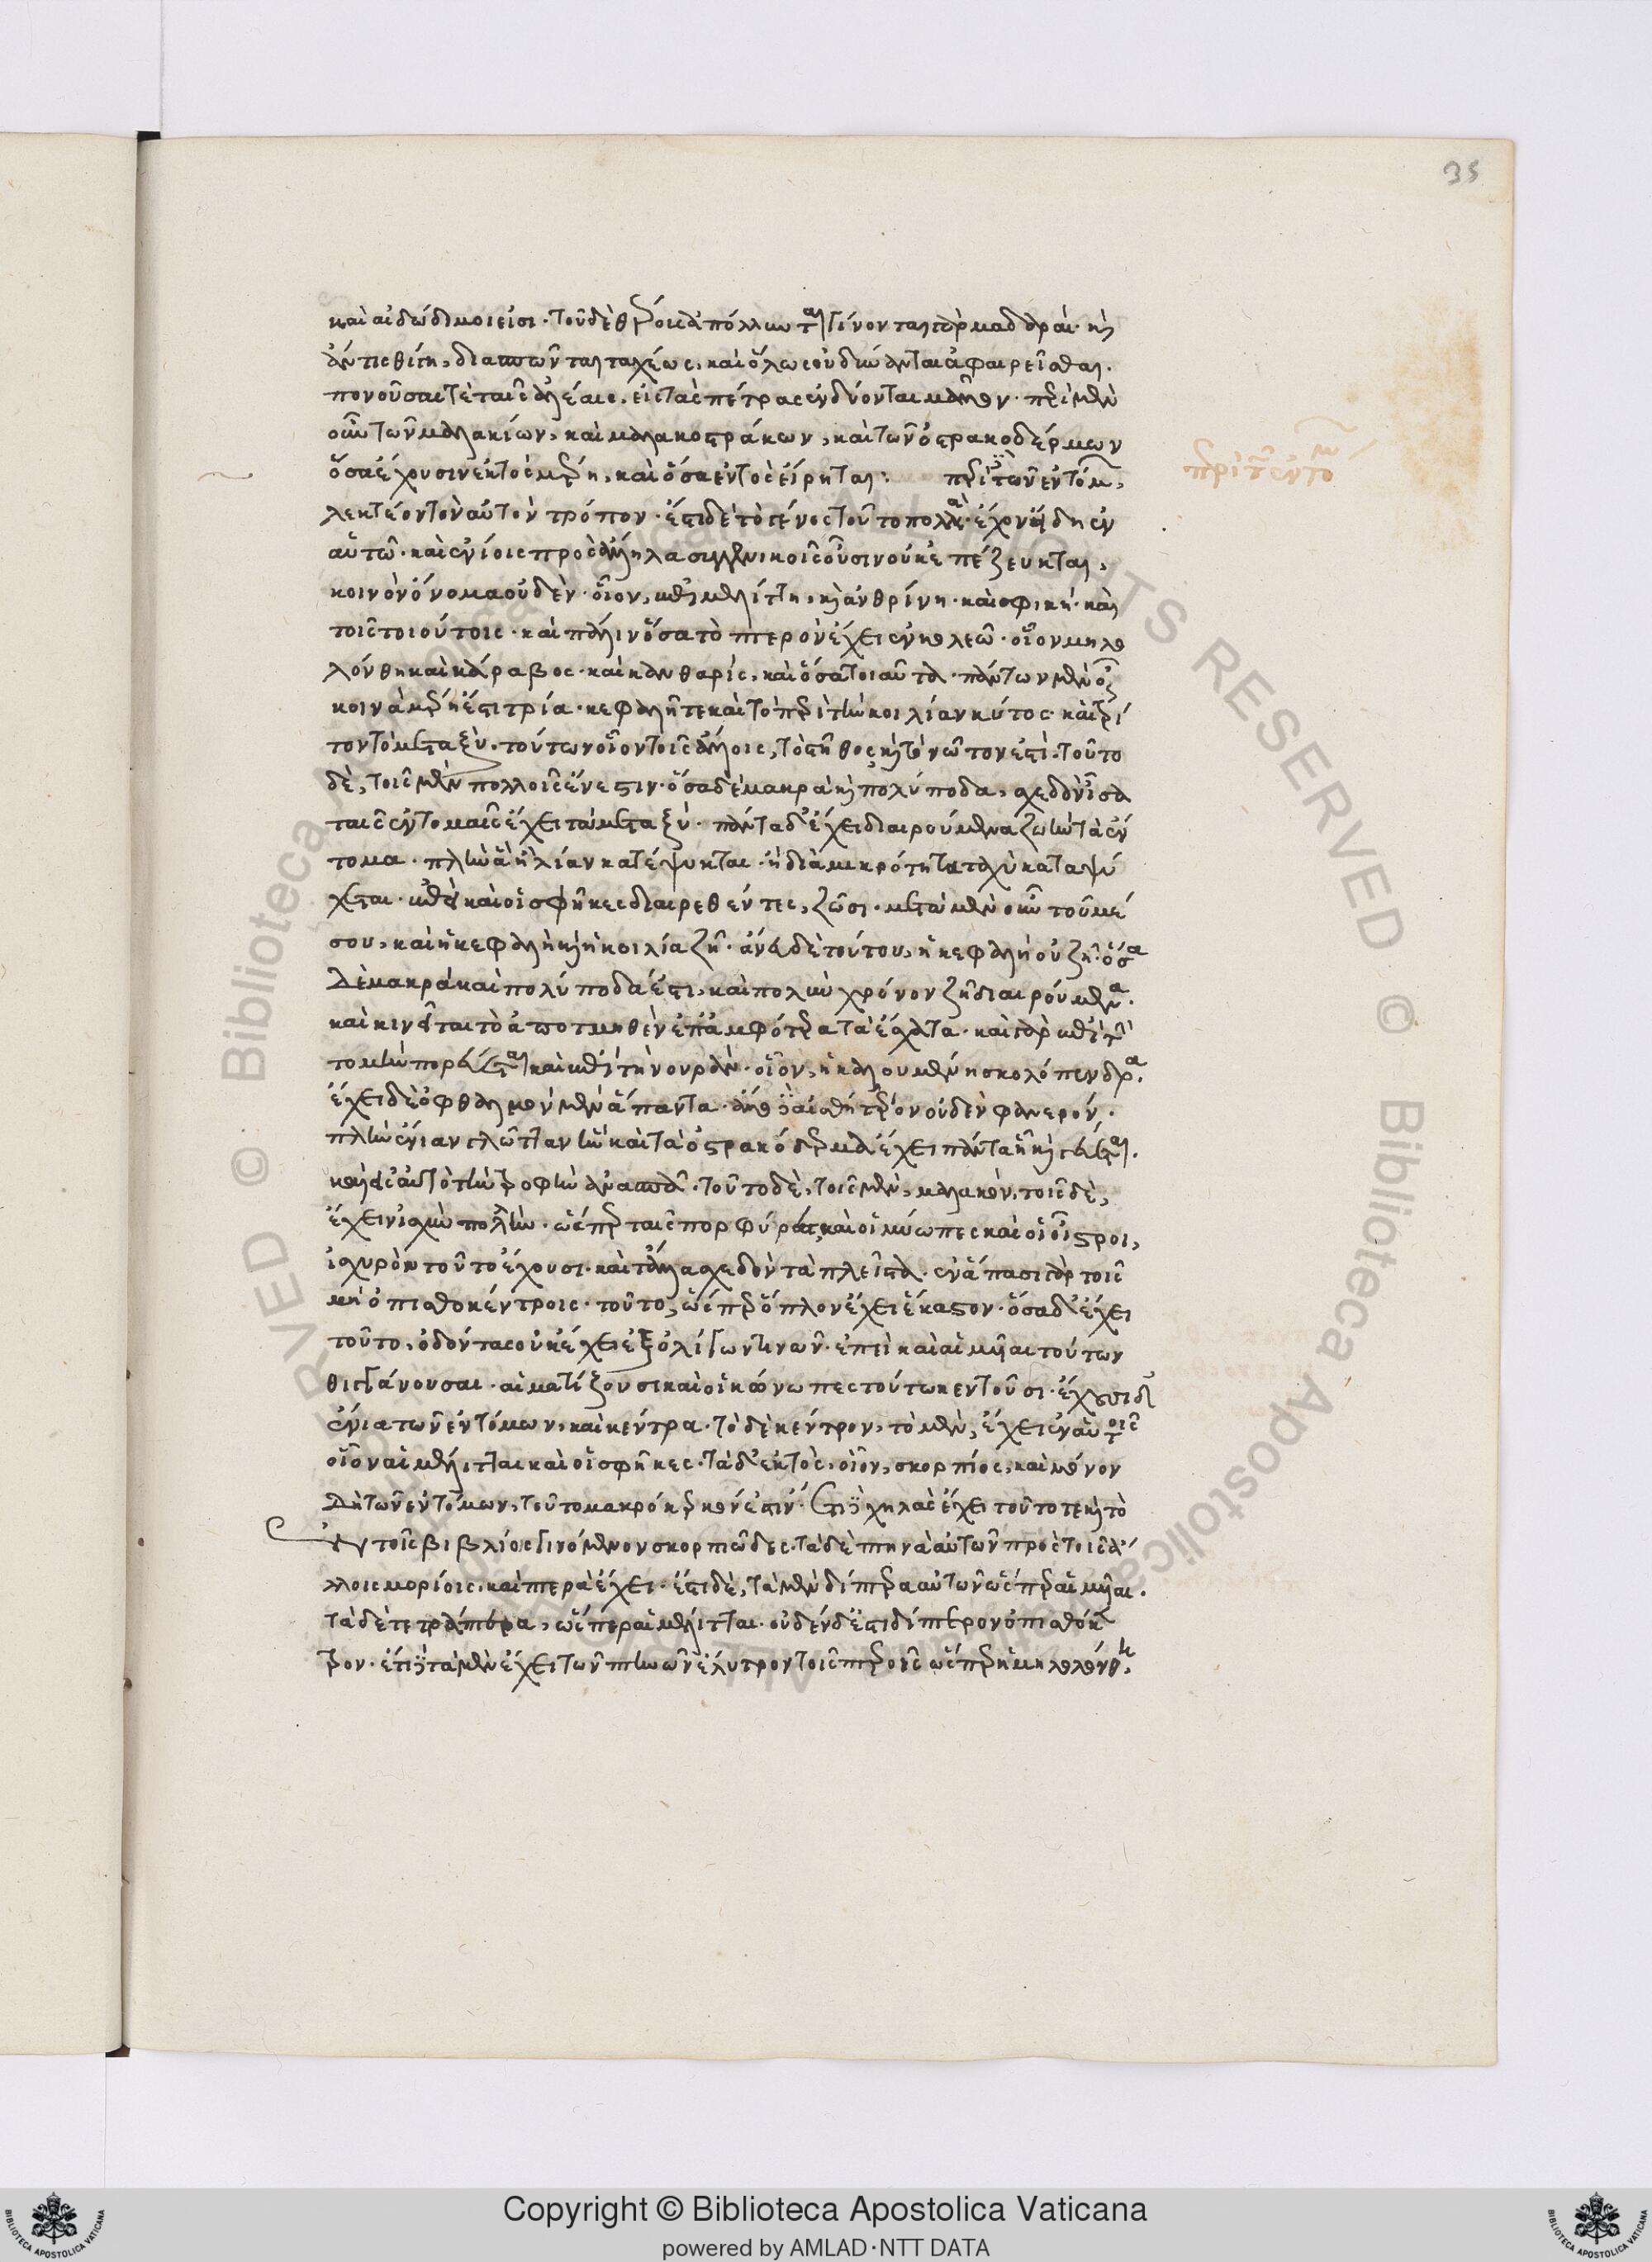 καὶ αἱ ἐδώδιμοι εἰσι· τοῦ δὲ θέρους ἀπόλλυνται γίνονται γὰρ μαδαραί· κἂν
ἄν τις θίγῃ, διασπῶνται ταχέως, καὶ ὅλως οὐ δύνανται ἀφαιρεῖσθαι.
πονοῦσαι τὲ ταῖς ἀλέαις, εἰς τὰς πέτρας ἐνδύονται μᾶλλον· περὶ μὲν
οὖν τῶν μαλακίων, καὶ μαλακοστράκων, καὶ τῶν ὀστρακοδέρμων
ὅσα ἔχουσιν ἐκτὸς μέρη, καὶ ὅσα ἐντὸς εἴρηται· περὶ δὲ τῶν ἐντόμων,
περὶ τῶν ἐντόμων
λεκτέον τὸν αὐτὸν τρόπον· ἔστι δὲ τὸ γένος τοῦτο πολλὰ ἔχον εἴδη ἐν
αὑτῷ· καὶ ἐνίοις πρὸς ἄλληλα συγγενικοῖς οὖσιν οὐκ ἐπέζευκται,
κοινὸν ὄνομα οὐδὲν· οἷον, ἐπὶ μελίττῃ, καὶ ἀνθρίνῃ· καὶ σφικὴ· καὶ
τοῖς τοιούτοις· καὶ πάλιν ὅσα τὸ πτερὸν ἔχει ἐν κολεῷ· οἷον μηλο
λόνθη καὶ κάραβος· καὶ κανθαρίς, καὶ ὅσα τοιαῦτα· πάντων μὲν οὖν
κοινὰ μέρη ἐστὶ τρία· κεφαλή τε καὶ τὸ περὶ τὴν κοιλίαν κύτος· καὶ τρί
τον τὸ μεταξὺ· τούτων οἷον τοῖς ἄλλοις, τὸ στῆθος καὶ τὸ νῶτον ἐστὶ· τοῦτο
δὲ, τοῖς μὲν πολλοῖς ἕν ἐστιν· ὅσα δὲ μακρὰ καὶ πολύποδα, σχεδὸν ἴσα
ταῖς ἐντομαῖς ἔχει τὰ μεταξύ· πάντα δ' ἔχει διαιρούμενα ζωὴν τὰ ἔν
τομα· πλὴν ἃ ἢ λίαν κατέψυκται· ἢ διὰ μικρότητα ταχὺ καταψύ
χεται· ἐπεὶ καὶ οἱ σφῆκες διαιρεθέντες, ζῶσι· μετὰ μὲν οὖν τοῦ μέ
σου, καὶ ἡ κεφαλὴ καὶ ἡ κοιλία ζῇ· ἄνευ δὲ τούτου, ἡ κεφαλὴ οὐ ζῇ· ὅσα
δὲ μακρὰ καὶ πολύποδά ἐστι, καὶ πολὺν χρόνον ζῇ διαιρούμενα·
καὶ κινεῖται τὸ ἀποτμηθὲν ἐπ' ἀμφότερα τὰ ἔσχατα· καὶ γὰρ ἐπὶ τὴν
τομὴν πορεύεται καὶ ἐπὶ τὴν οὐρὰν· οἷον, ἡ καλουμένη σκολόπενδρα.
ἔχει δὲ ὀφθαλμὸν μὲν ἅπαντα· ἄλλο δὲ αἰσθητήριον οὐδὲν φανερόν·
πλὴν ἔνια γλῶτταν ἣν καὶ τὰ ὀστρακόδερμα ἔχει πάντα ᾗ καὶ γεύεται.
καὶ εἰς αὑτὸ τὴν τροφὴν ἀνασπᾷ· τοῦτο δὲ, τοῖς μὲν, μαλακόν, τοῖς δὲ,
ἔχει ἰσχὺν πολλὴν· ὥσπερ ταῖς πορφύραις, καὶ οἱ μύωπες καὶ οἱ οἶστροι,
ἰσχυρὸν τοῦτο ἔχουσι· καὶ τἆλλα σχεδὸν τὰ πλεῖστα· ἐν ἅπασι γὰρ τοῖς
μὴ ὀπισθοκέντροις· τοῦτο, ὥσπερ ὅπλον ἔχει ἕκαστον· ὅσα δ' ἔχει
τοῦτο, ὀδόντας οὐκ ἔχει ἔξω ὀλίγων τινῶν· ἐπεὶ καὶ αἱ μυῖαι τούτων
θιγγάνουσαι· αἱματίζουσι καὶ οἱ κώνωπες τούτω κεντοῦσι· ἔχουσι δ'
ἔνια τῶν ἐντόμων, καὶ κέντρα· τὸ δὲ κέντρον, τὸ μὲν, ἔχει ἐν αὑτοῖς
οἷον αἱ μέλιτται καὶ οἱ σφῆκες· τὰ δ' ἐκτὸς, οἷον, σκορπίος, καὶ μόνον
δὴ τῶν ἐντόμων, τοῦτο μακρόκερκόν ἐστίν· ἔτι δὲ χηλὰς ἔχει τοῦτό τε καὶ τὸ
ἐν τοῖς βιβλίοις γινόμενον σκορπιῶδες· τὰ δὲ πτηνὰ αὐτῶν πρὸς τοῖς ἄ
λλοις μορίοις, καὶ πτερὰ ἔχει· ἔστι δὲ, τὰ μὲν δίπτερα αὐτῶν ὥσπερ αἱ μυῖαι.
τὰ δὲ τετράπτερα, ὥσπερ αἱ μέλιτται· οὐδὲν δ' ἐστὶ δίπτερον ὀπισθόκεν
τρον· ἔτι δὲ τὰ μὲν ἔχει τῶν πτηνῶν ἔλυτρον τοῖς πτεροῖς ὥσπερ ἡ μηλολόνθη,
35
Copyright © Biblioteca Apostolica Vaticana
powered by AMLAD·NTT DATA